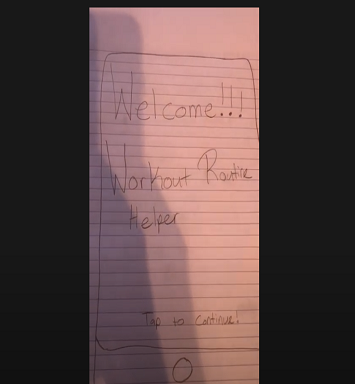 Welcome!!!
Workout Routine
Helper
Tap to continue!